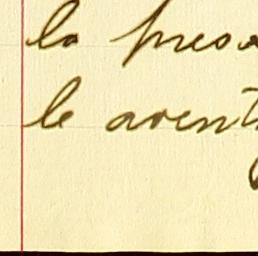 la preso
le avent